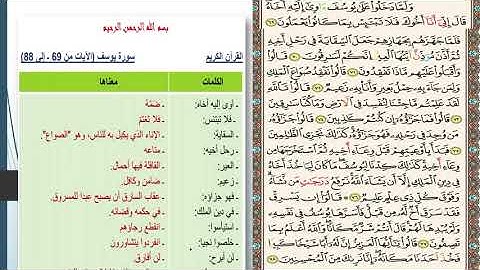 وَلَمَّا دَخَلُوا۟ عَلَىٰ يُوسُفَ ءَاوَىٰٓ إِلَيْهِ أَخَاهُ
قَالَ إِنِّىٓ أَنَا۠ أَخُوكَ فَلَا تَبْتَئِسْ بِمَا كَانُوا۟ يَعْمَلُونَ ٦٩
فَلَمَّا جَهَّزَهُم بِجَهَازِهِمْ جَعَلَ ٱلسِّقَايَةَ فِى رَحْلِ أَخِيهِ
ثُمَّ أَذَّنَ مُؤَذِّنٌ أَيَّتُهَا ٱلْعِيرُ إِنَّكُمْ لَسَـٰرِقُونَ ٧٠ قَالُوا۟
وَأَقْبَلُوا۟ عَلَيْهِم مَّاذَا تَفْقِدُونَ ٧١ قَالُوا۟ نَفْقِدُ صُوَاعَ ٱلْمَلِكِ
وَلِمَن جَآءَ بِهِۦ حِمْلُ بَعِيرٍ وَأَنَا۠ بِهِۦ زَعِيمٌ ٧٢ قَالُوا۟ تَٱللَّهِ
لَقَدْ عَلِمْتُم مَّا جِئْنَا لِنُفْسِدَ فِى ٱلْأَرْضِ وَمَا كُنَّا سَـٰرِقِينَ
٧٣ قَالُوا۟ فَمَا جَزَٰٓؤُهُۥٓ إِن كُنتُمْ كَـٰذِبِينَ ٧٤ قَالُوا۟ جَزَٰٓؤُهُۥ
مَن وُجِدَ فِى رَحْلِهِۦ فَهُوَ جَزَٰٓؤُهُۥ كَذَٰلِكَ نَجْزِى ٱلظَّـٰلِمِينَ
٧٥ فَبَدَأَ بِأَوْعِيَتِهِمْ قَبْلَ وِعَآءِ أَخِيهِ ثُمَّ ٱسْتَخْرَجَهَا مِن
وِعَآءِ أَخِيهِ كَذَٰلِكَ كِدْنَا لِيُوسُفَ مَا كَانَ لِيَأْخُذَ أَخَاهُ
فِى دِينِ ٱلْمَلِكِ إِلَّآ أَن يَشَآءَ ٱللَّهُ نَرْفَعُ دَرَجَـٰتٍ مَّن نَّشَآءُ
وَفَوْقَ كُلِّ ذِى عِلْمٍ عَلِيمٌ ٧٦ قَالُوٓا۟ إِن يَسْرِقْ
فَقَدْ سَرَقَ أَخٌ لَّهُۥ مِن قَبْلُ فَأَسَرَّهَا يُوسُفُ فِى نَفْسِهِۦ
وَلَمْ يُبْدِهَا لَهُمْ قَالَ أَنتُمْ شَرٌّ مَّكَانًا وَٱللَّهُ أَعْلَمُ بِمَا تَصِفُونَ
٧٧ قَالُوا۟ يَـٰٓأَيُّهَا ٱلْعَزِيزُ إِنَّ لَهُۥٓ أَبًا شَيْخًا كَبِيرًا
فَخُذْ أَحَدَنَا مَكَانَهُۥٓ إِنَّا نَرَىٰكَ مِنَ ٱلْمُحْسِنِينَ ٧٨
بسم الله الرحمن الرحيم
القرآن الكريم سورة يوسف (الآيات من 69 - إلى 88)
الكلمات معناها
- آوى إليه أخاه: - ضمّه
- فلا تبتئس: - فلا تغتم
- السقاية: - الإناء الذي يكيل به للناس، وهو "الصواع".
- رحل أخيه: - متاعه
- العير: - القافلة فيها أحمال.
- زعيم: - ضامن وكافل.
- فهو جزاؤه: - عقاب السارق أن يصبح عبدا للمسروق.
- في دين الملك: - في حكمه وقضائه.
- استيأسوا: - انقطع رجاؤهم
- خلصوا نجيا: - انفردوا يتشاورون
- لن أبرح: - لن أفارق